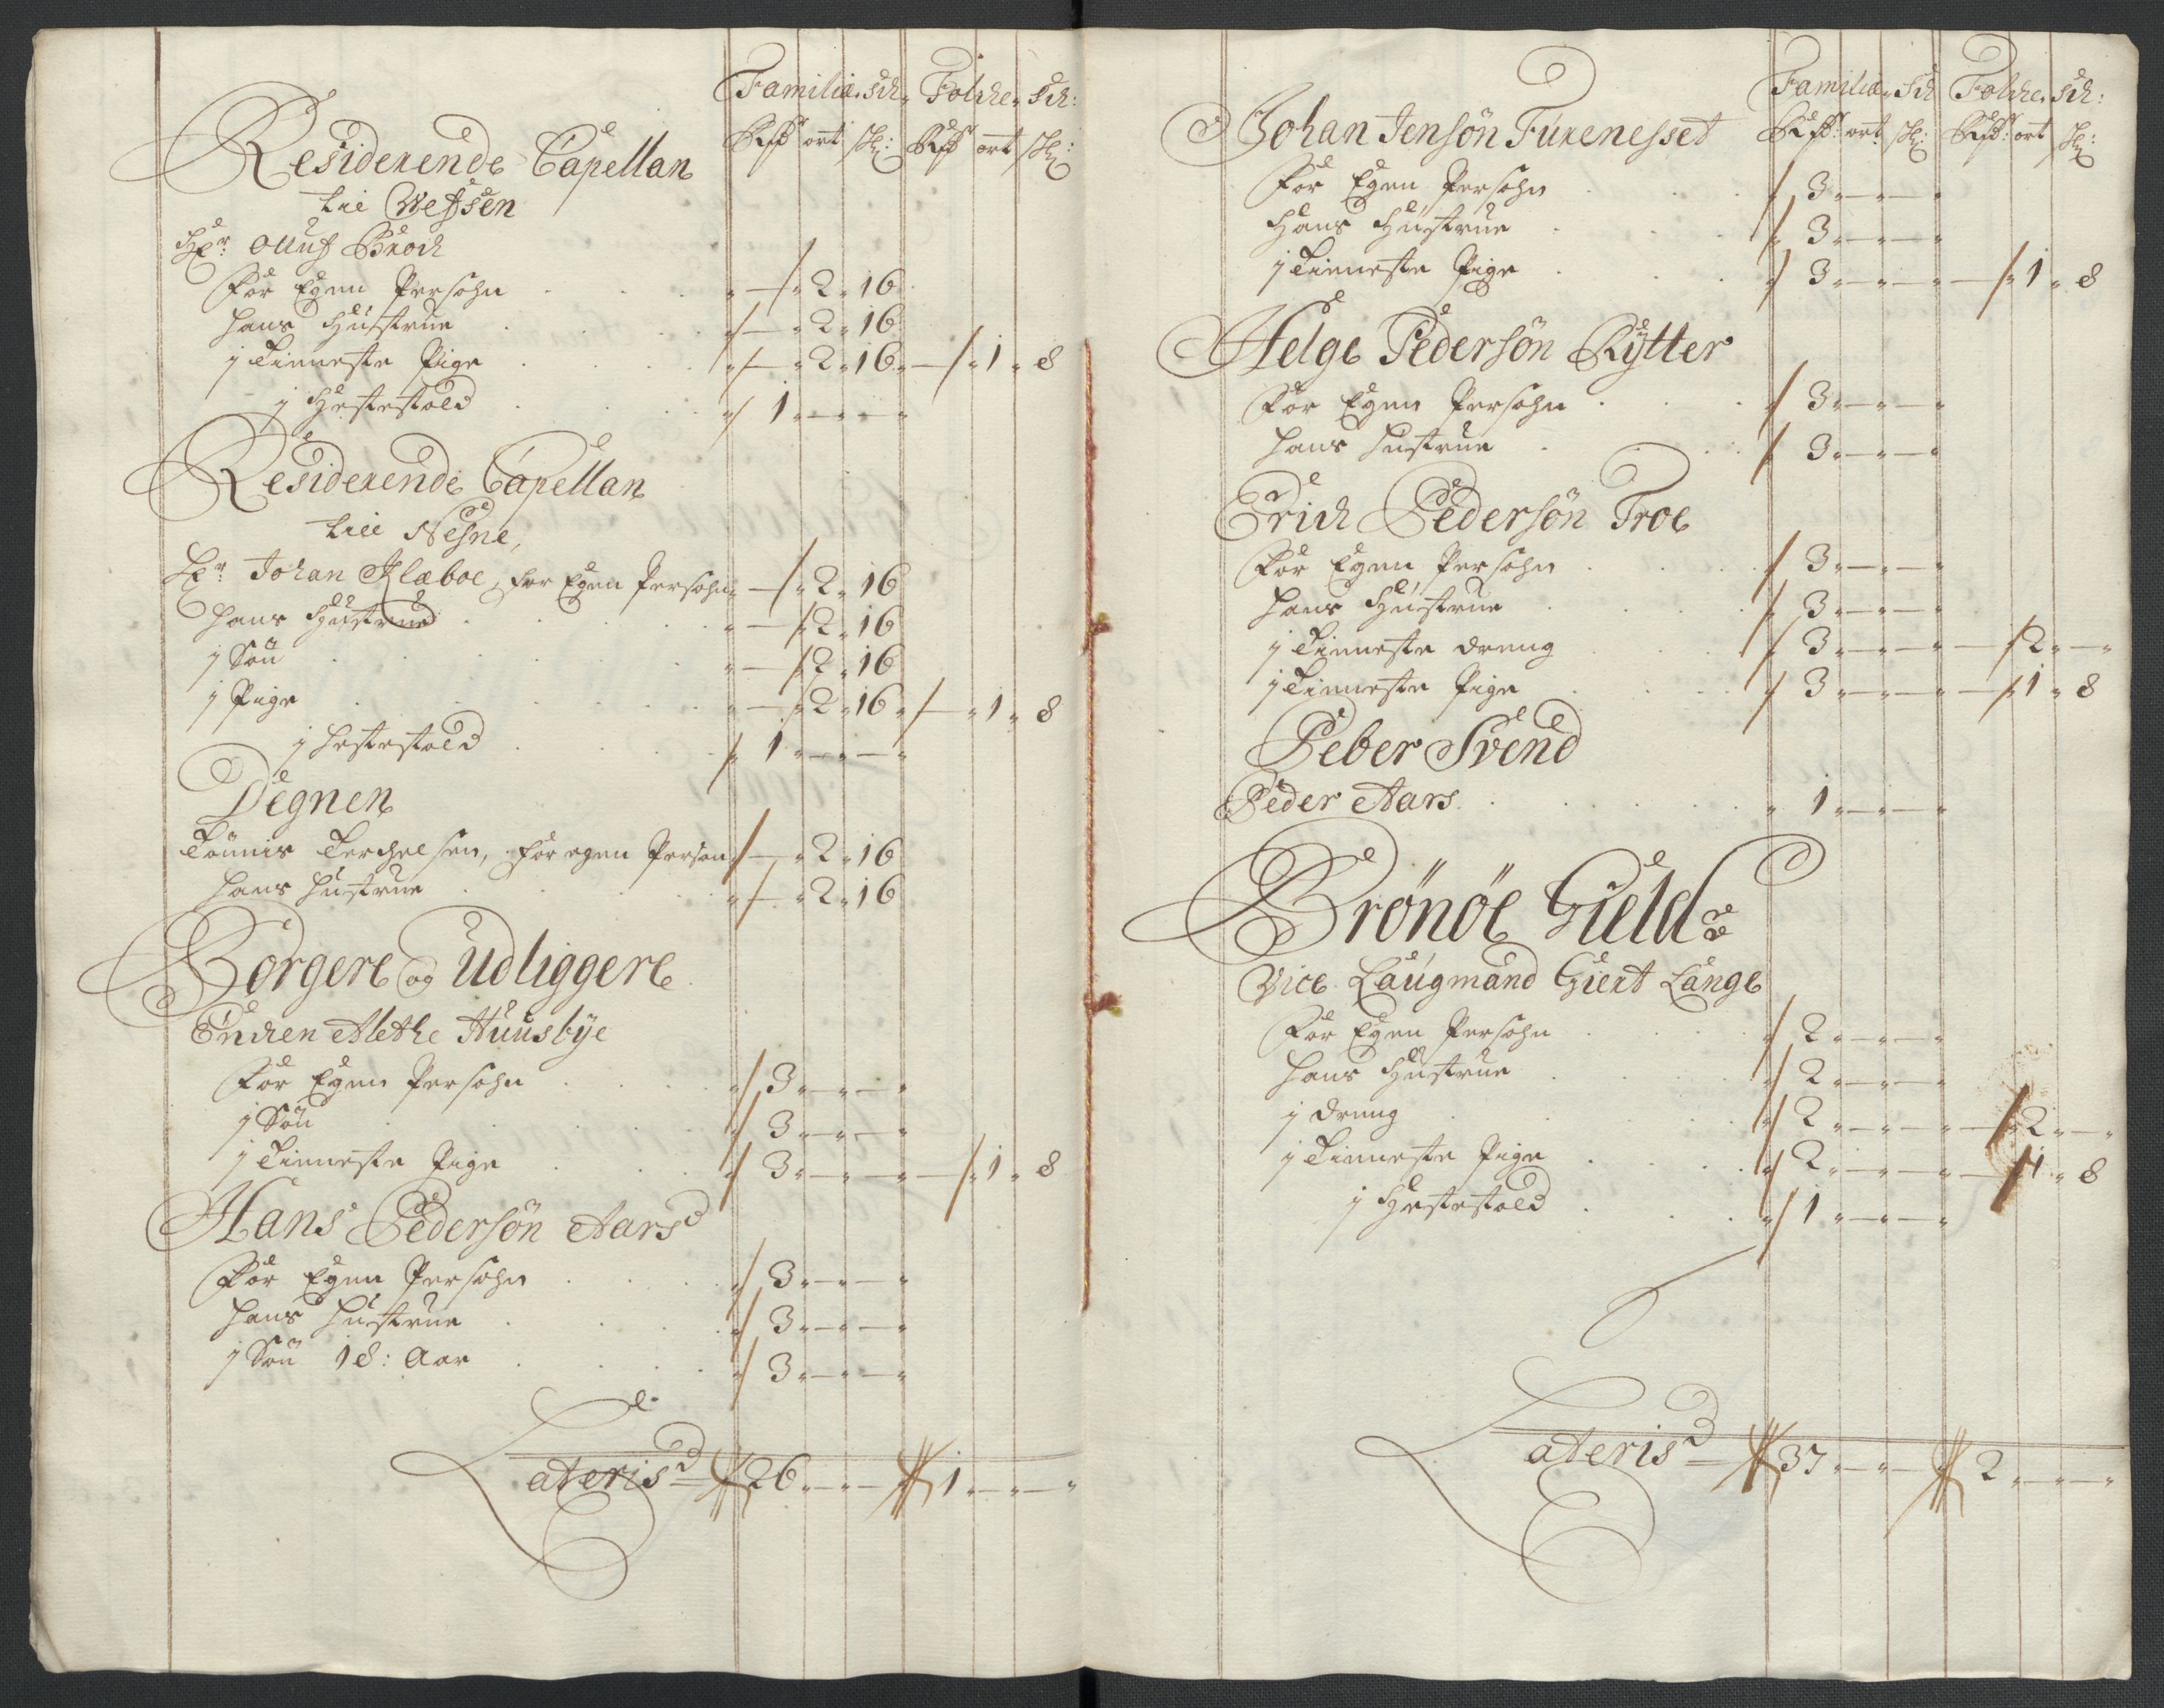 Familie. Sch. Folche. Sch:
Rdr ort sk: Rdr ort sk:
Residerende Capellan
til Wefsen
Hr: Oluf Broch
For Egen Persohn - 2 16
hans Hustrue - 2 16
1 Tieneste Pige - 2 16 - 1 8
1 Hestehold 1 - -
Residerende Capellan
till Nesne,
Hr: Johan Klæboe, for Egen Persohn - 2 16
hans Hustrue - 2 16
1 Søn - 2 16
1 Pige - 2 16 - 1 8
1 hestehold 1 - -
Degnen
Tönnis Terchelsen, for egen Person - 2 16
hans hustrue - 2 16
Borgere og Udliggere
Enchen Alethe Huusbÿe
For Egen Persohn 3 - -
1 Søn 3 - -
1 Tieneste Pige 3 - - - 1 8
Hans Pedersön Aars
For Egen Persohn 3 - -
hans hustrue 3 - -
1 Søn 18: Aar 3 - -
Lateris 26 - - 1 - -
Familie. Sch Folche. Sch:
Rdr: ort: sk: Rdr: ort sk:
Johan Jensön Furenesset
For Egen Persohn 3 - -
Hans Hustrue 3 - -
1 Tieneste Pige 3 - - - 1 8
Helge Pedersön Rÿtter
For Egen Persohn 3 - -
hans hustrue 3 - -
Erich Pedersön Troe
For Egen Persohn 3 - -
hans Hustrue 3 - -
1 Tieneste dreng 3 - - - 2 -
1 Tieneste Pige 3 - - - 1 8
Peber Svend
Peder Aars 1 - -
Brönöe Gield:
Vice Laugmand Giert Lange
For Egen Persohn 2 - -
hans Hustrue 2 - -
1 dreng 2 - - - 2 -
1 Tieneste Pige 2 - - - 1 8
1 Hestehold 1 - -
Lateris 37 - - 2 - -